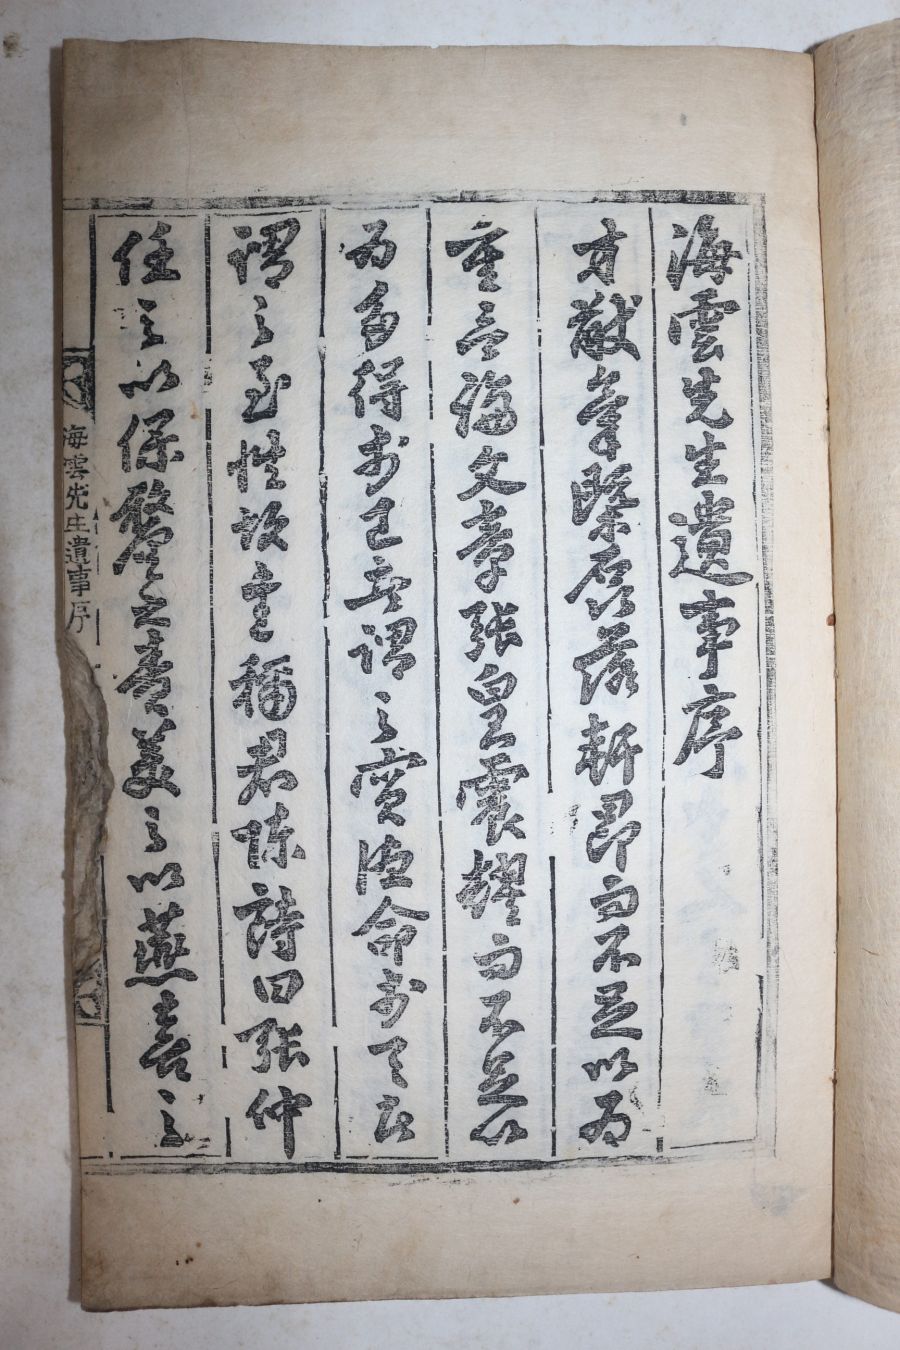 海雲先生遺事序
才猷幸際磊落軒昂而不足以爲
重言論文章張皇震耀而不足以
爲多得於己者謂之實德命於天者
謂之至性故史稱君陳詩曰張仲
任之以保釐之責美之以燕喜之
海雲先生遺事序